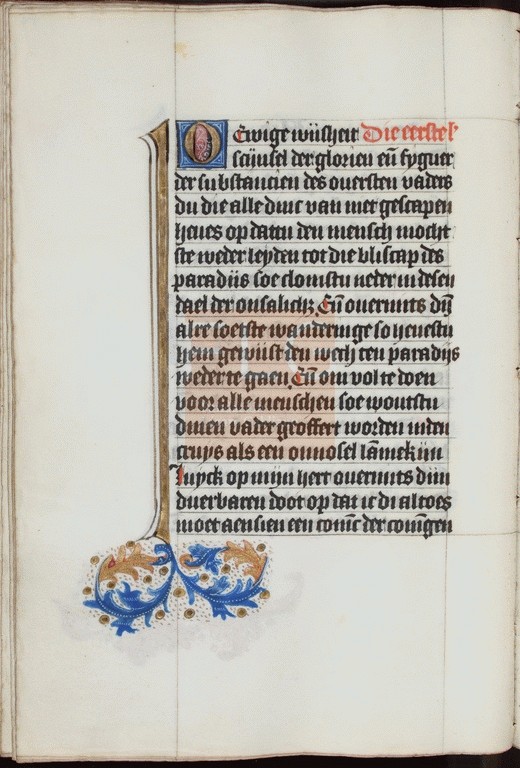 O Ewige wijsheit Die eerstel
scijnsel der glorien eñ fyguer
der substancien des ouersten vaders
du die alle dinc van niet gescapen
heues op dattu den mensch mocht
ste weder leyden tot die bliscap des
paradijs soe clomstu neder in desen
dael der onsalich; Eñ ouermits dijn
alre soetste wanderinge so heuestu
hem gewijst den wech ten paradijs
weder te gaen Eñ om vol te doen
voor alle menschen soe woutstu
dinen vader geoffert worden inden
cruys als een onnosel lammekijn
Luyck op mijn hert ouermits dijn
duerbaren doot op dat ic di altoes
moet aensian een coninc der coningen